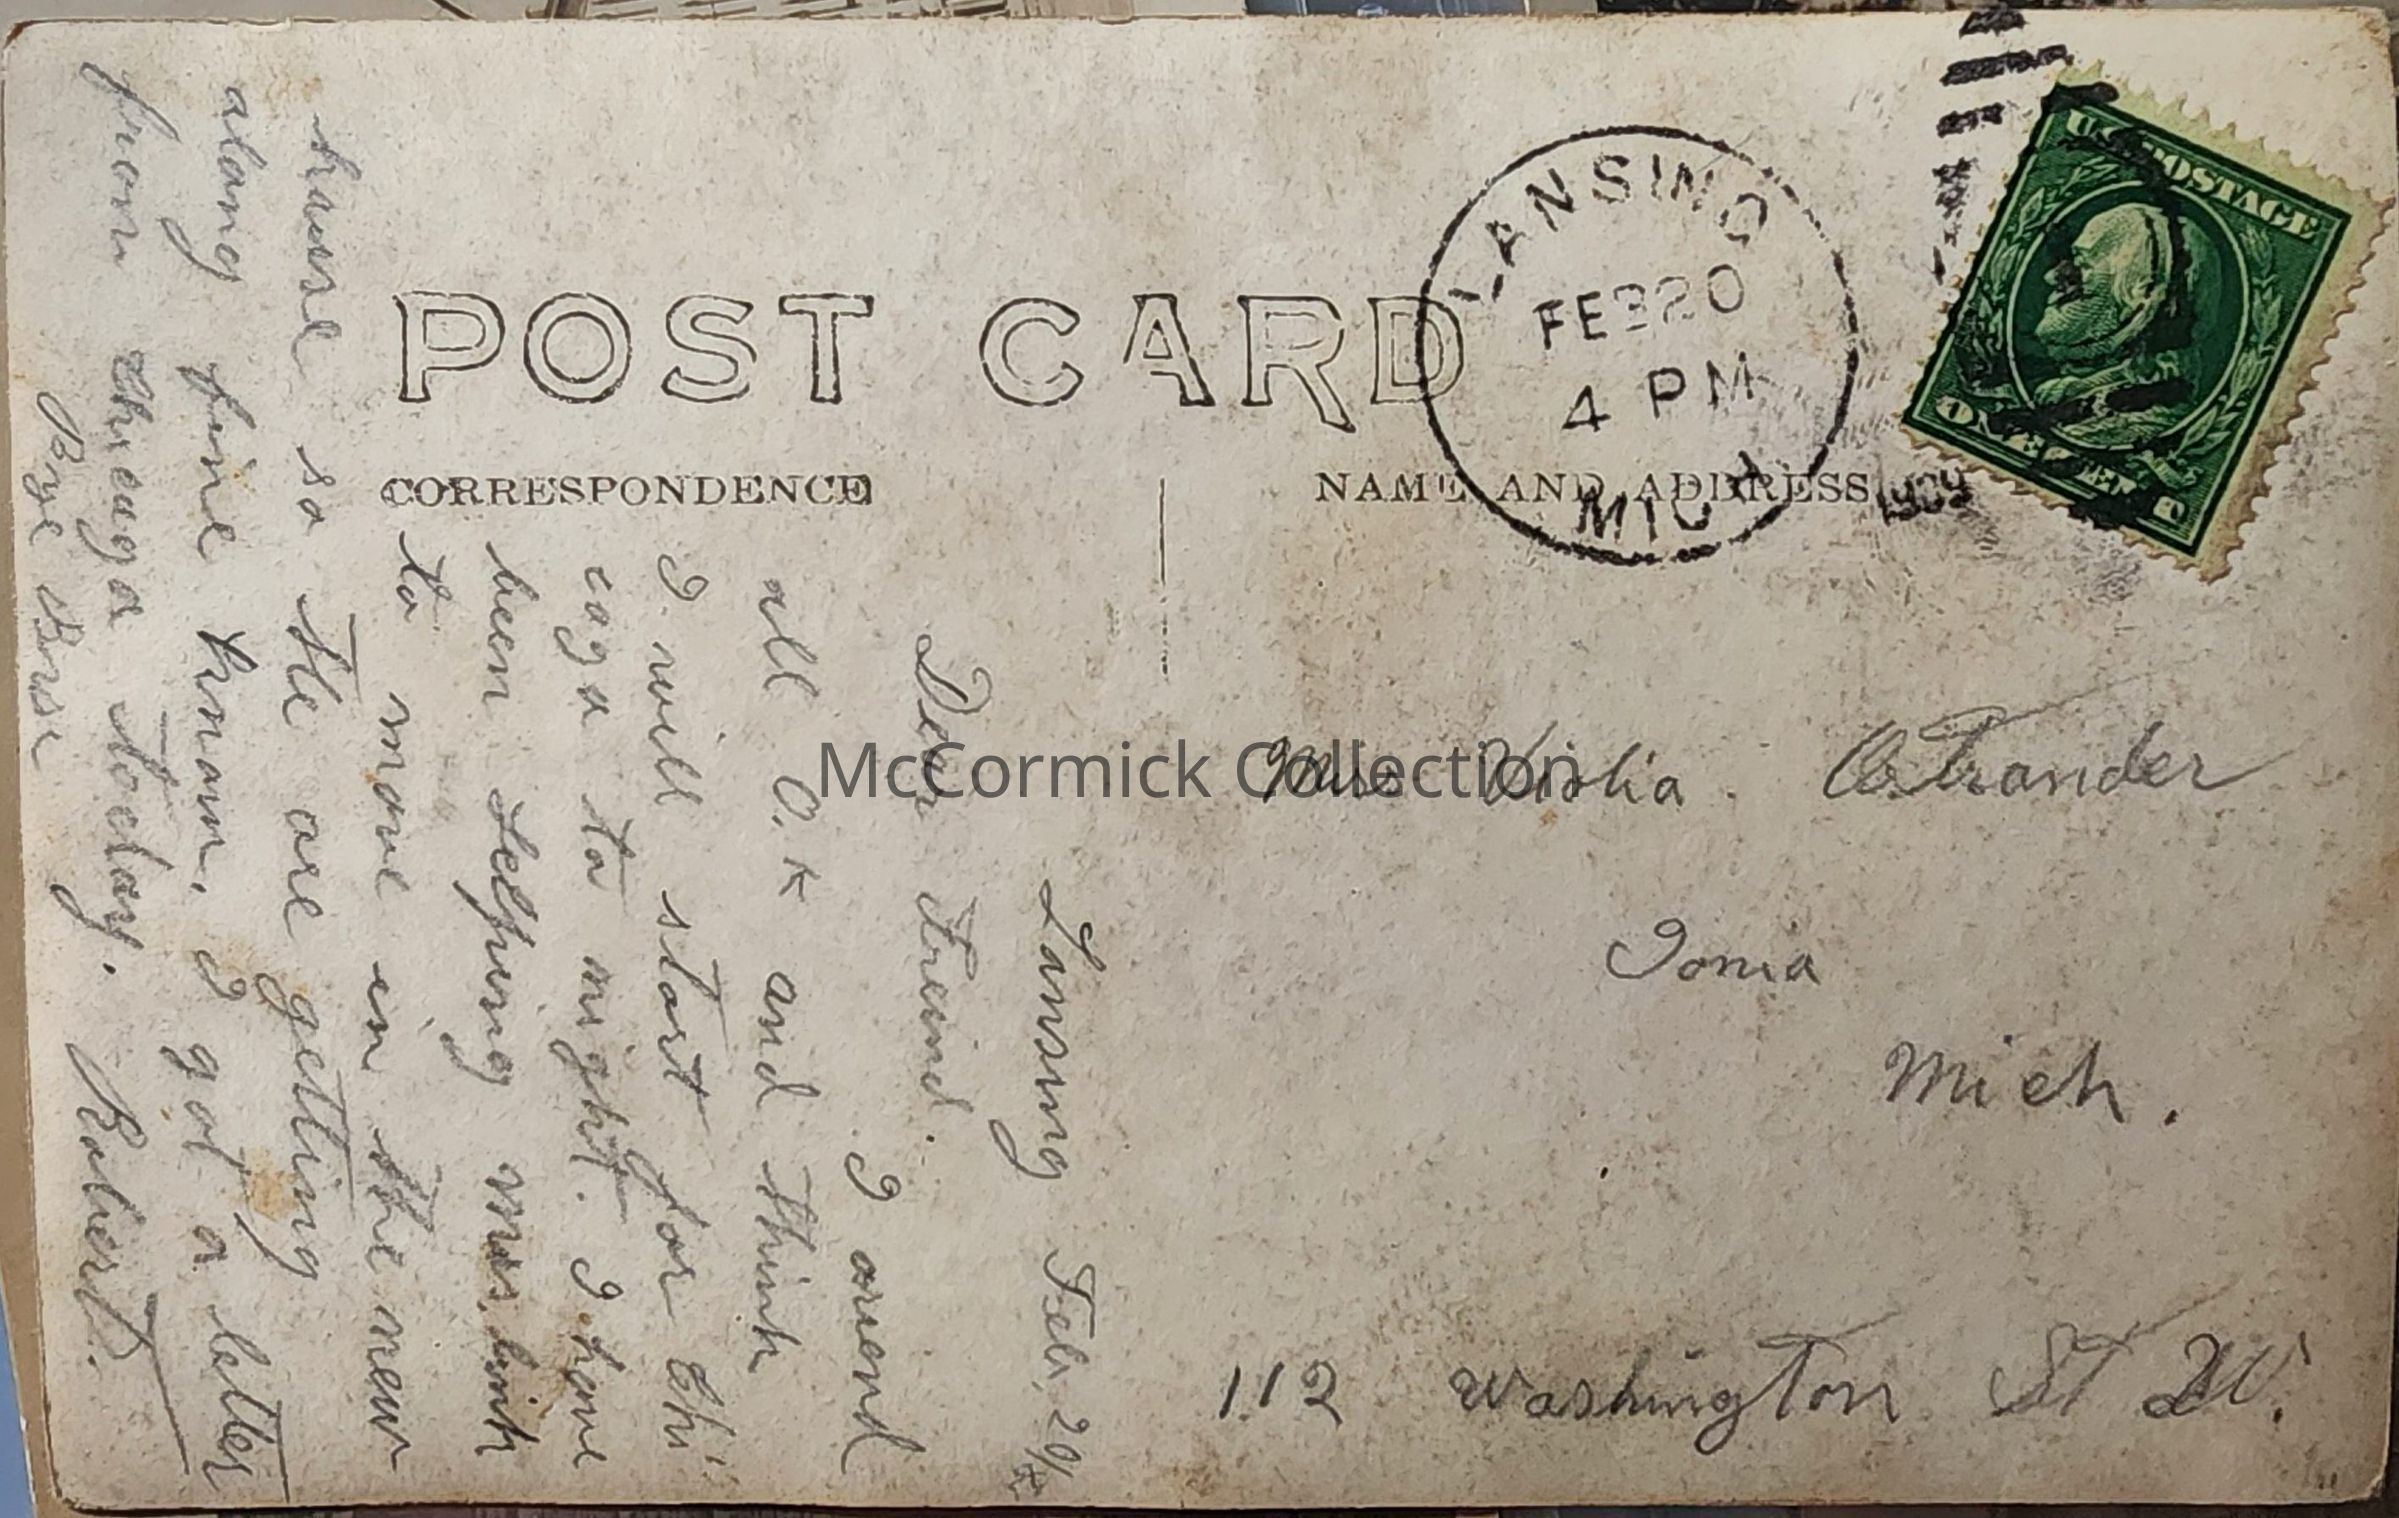 POST CARD
CORRESPONDENCE
NAME AND ADDRESS
LANSING
FEB 20
4 PM
MICH
1909
U.S. POSTAGE
ONE CENT
Lansing Feb, 20/
Dear Freind.
I arrend
all O.K and think
I will start for Chi
cago to night. I have
been helping Mrs.
to move in the new
house so the are getting
along fine know. I got a letter
from Chicago today.
Bye Bye Robert.
Miss Violia Ostrander
Ionia
Mich.
112 Washington St W.
McCormick Collection